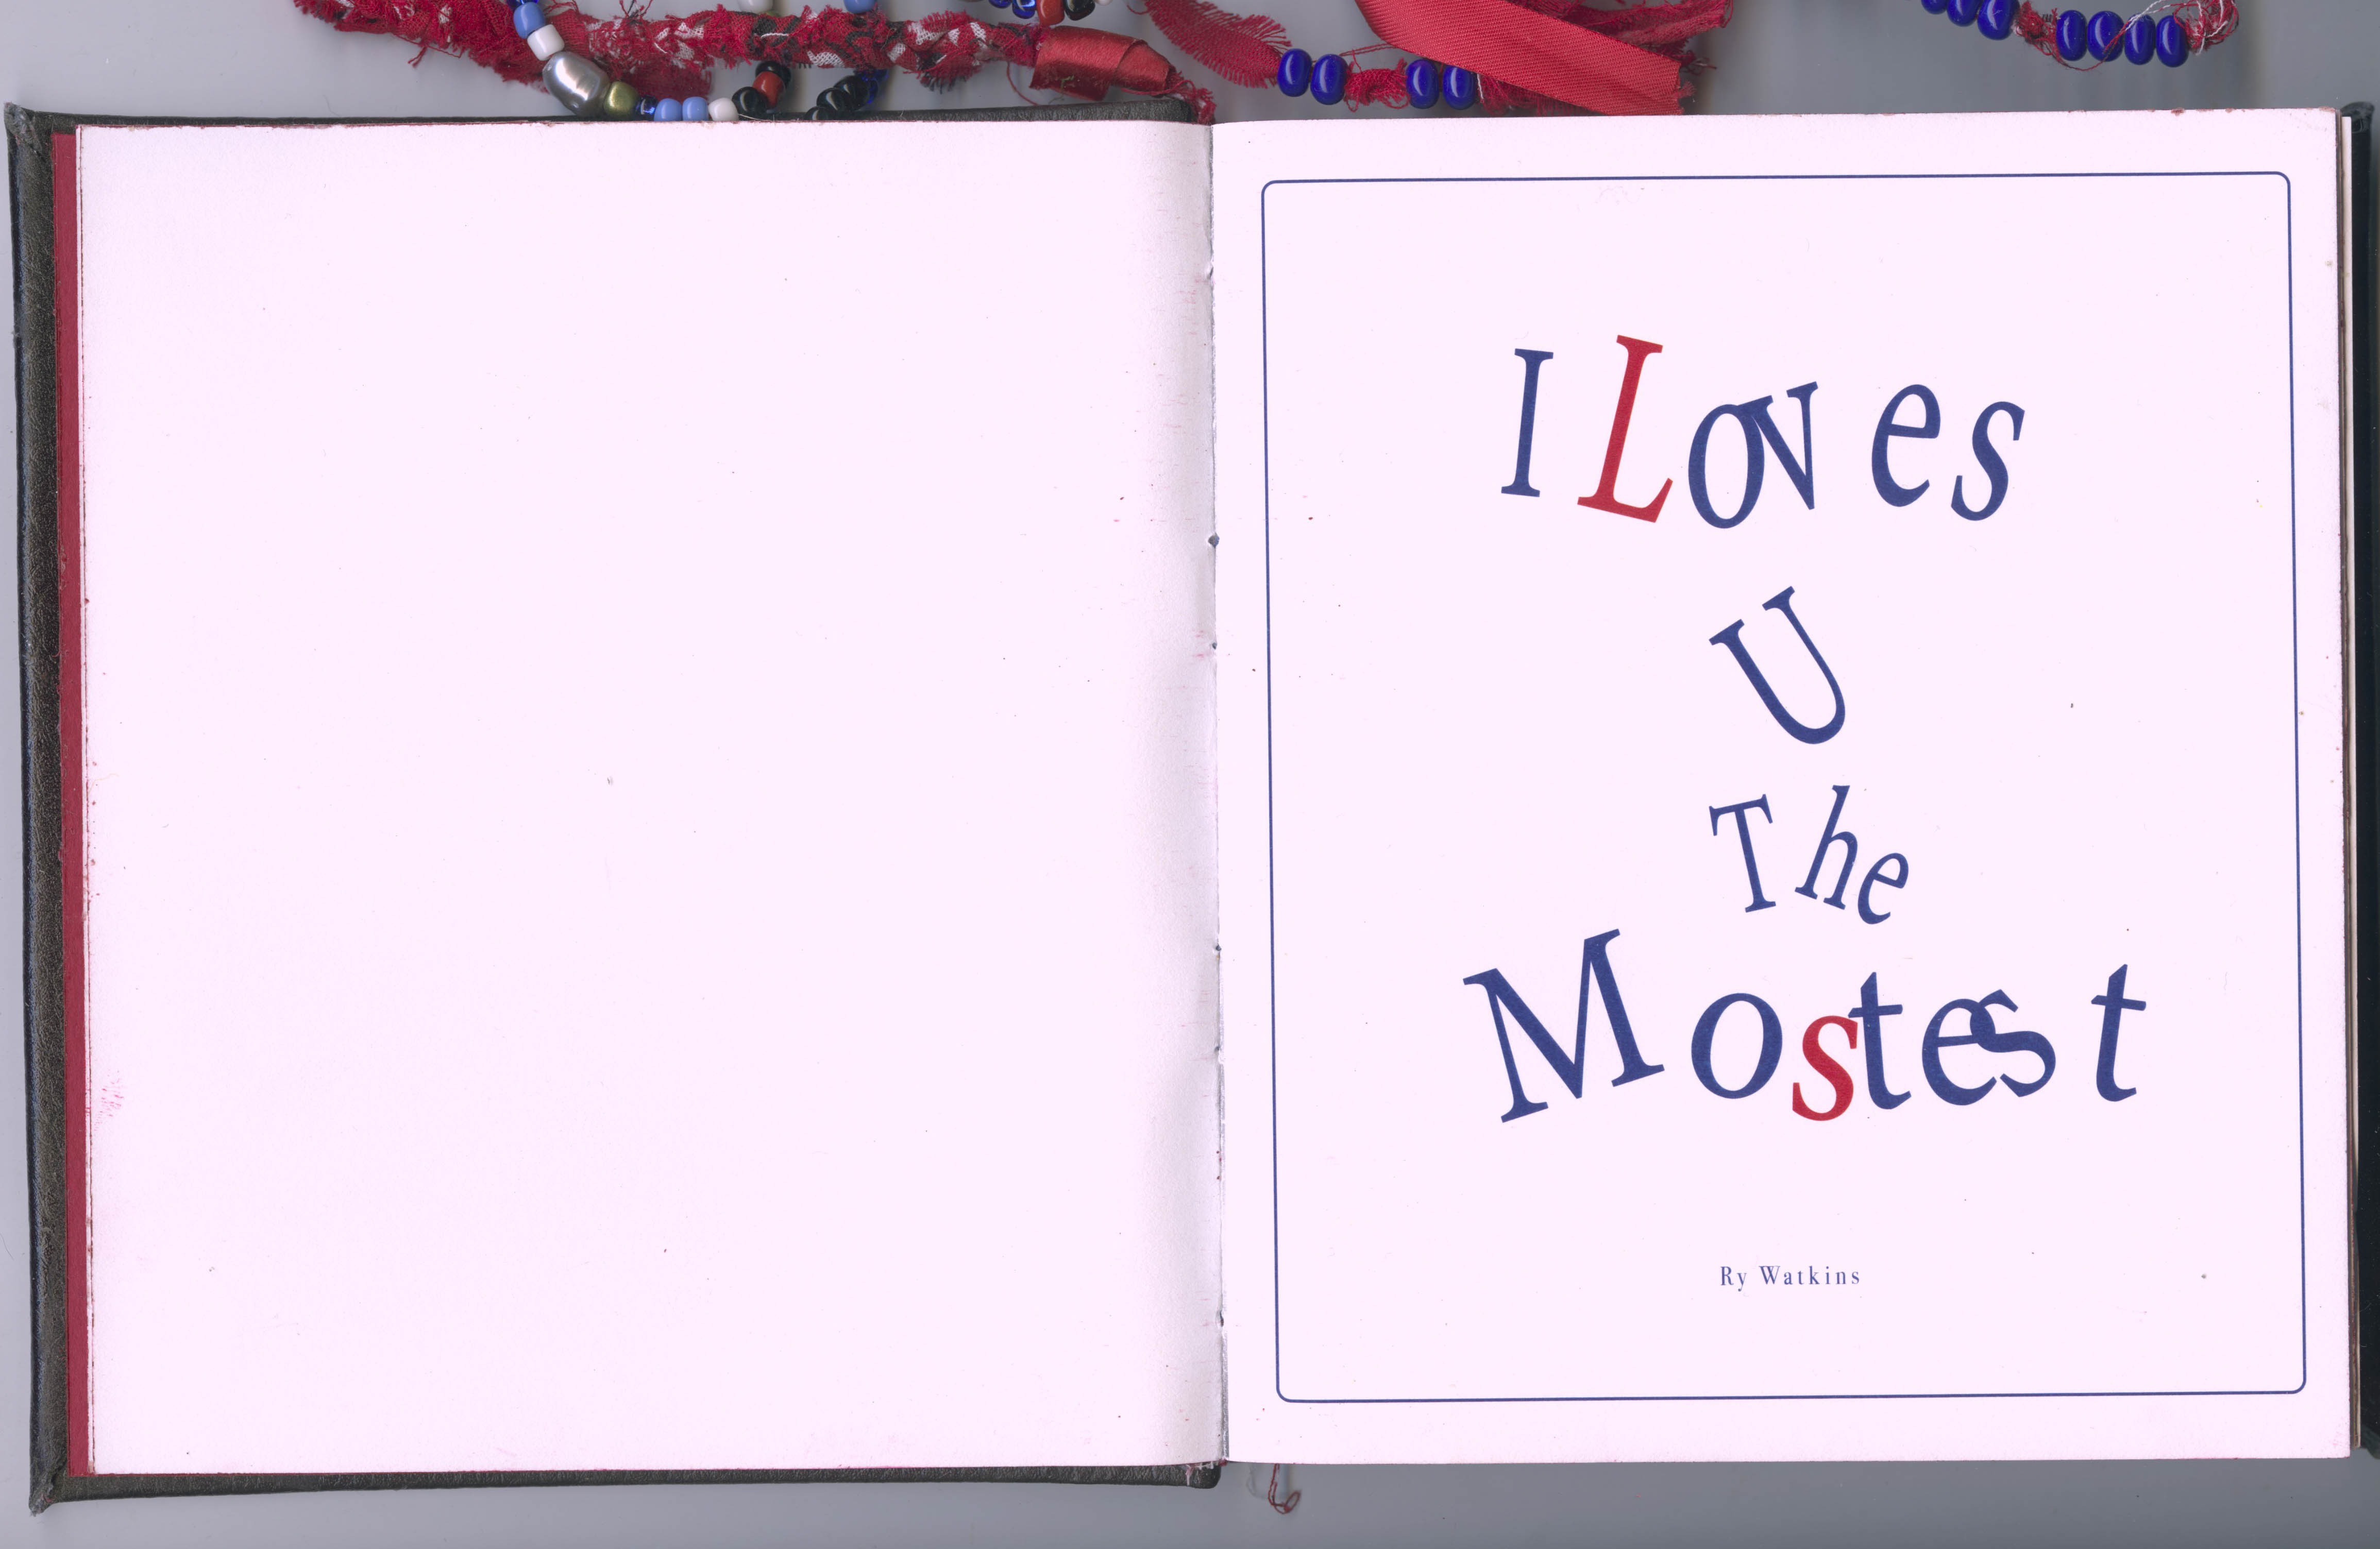 I Loves
U
The
Mostest
Ry Watkins